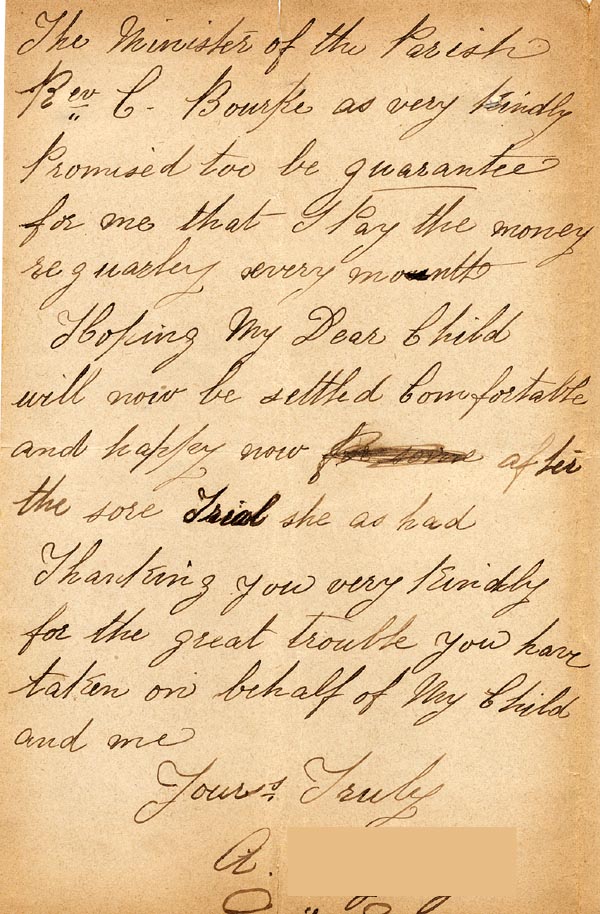 The Minister of the Parish
Rev C. Bourke as very kindly
Promised too be guarantee
for me that I Pay the money
reguarley every mounth
Hoping My Dear Child
will now be settled Comfortable
and happy now after
the sore Trial she as had
Thanking you very kindly
for the great trouble you have
taken on behalf of My Child
and me
Yours Truly
A.